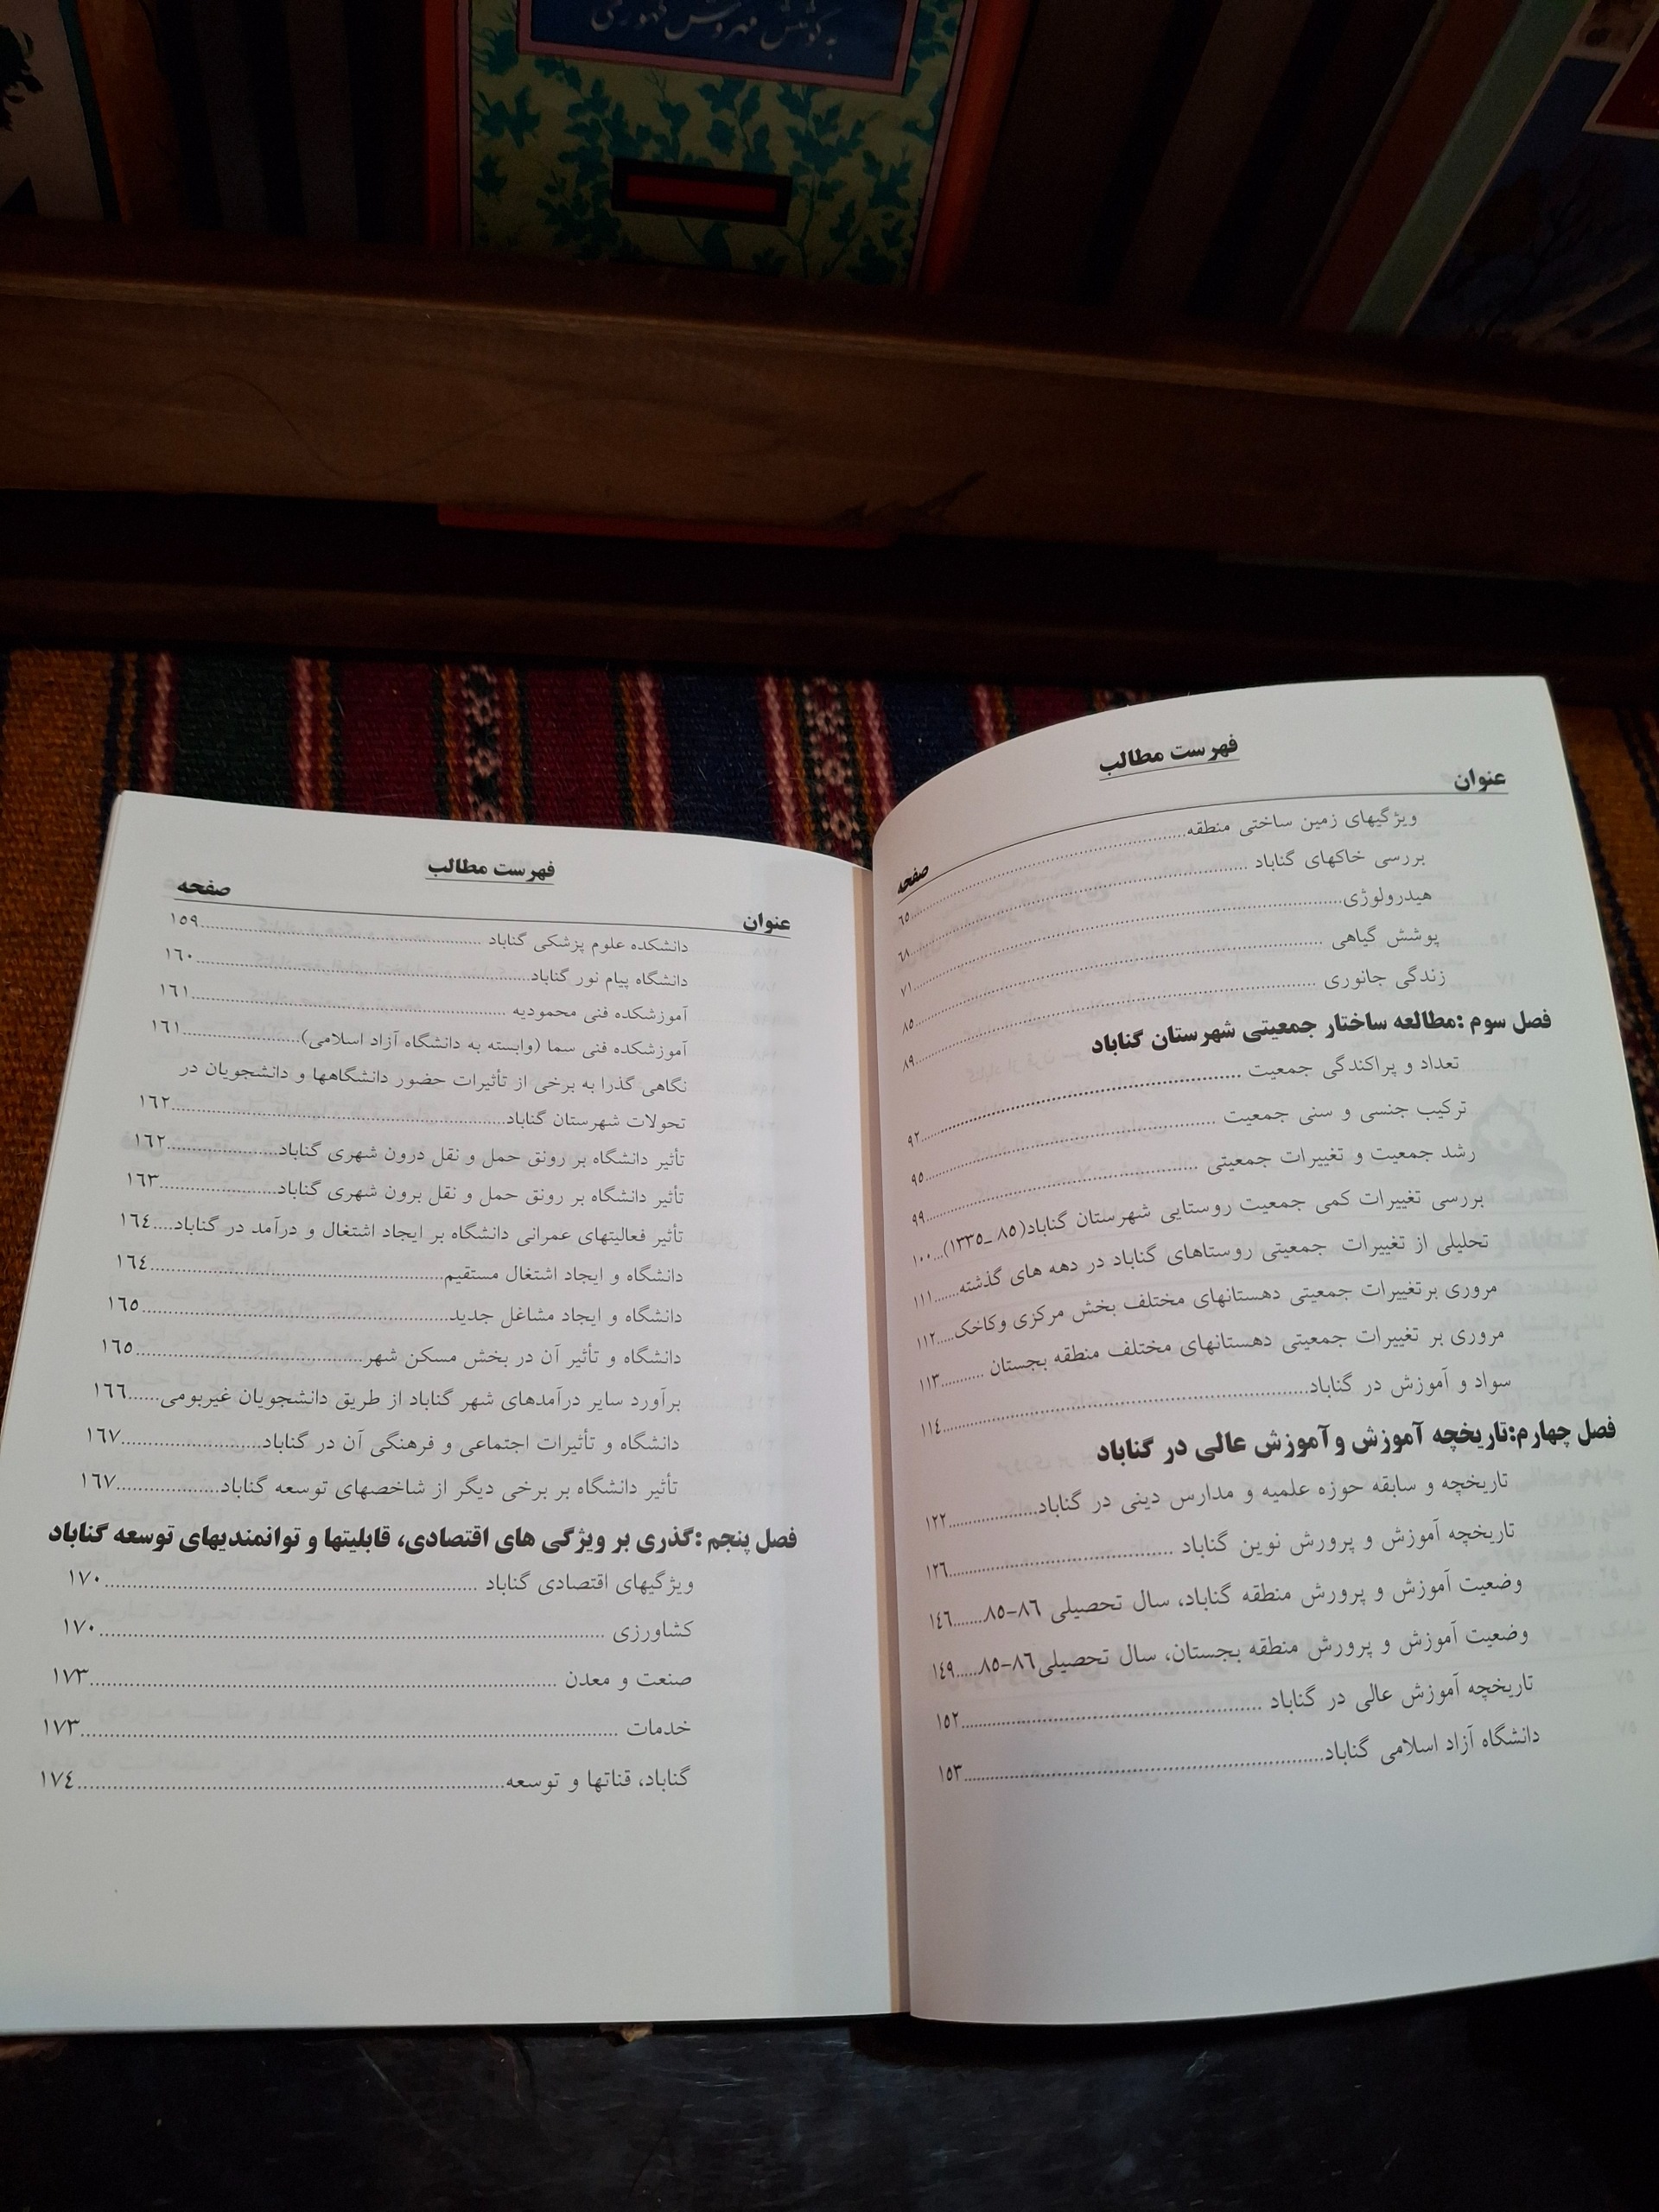 به کوشش مهروش طهوری
فهرست مطالب
عنوان
صفحه
ویژگیهای زمین ساختی منطقه..........٦٥
بررسی خاکهای گناباد ..........٦٨
هیدرولوژی..........٧١
پوشش گیاهی ..........٨٥
زندگی جانوری ..........٨٩
فصل سوم :مطالعه ساختار جمعیتی شهرستان گناباد
تعداد و پراکندگی جمعیت ..........٩٢
ترکیب جنسی و سنی جمعیت ..........٩٥
رشد جمعیت و تغییرات جمعیتی ..........٩٩
بررسی تغییرات کمی جمعیت روستایی شهرستان گناباد(٨٥ _١٣٣٥)...١٠٠
تحلیلی از تغییرات جمعیتی روستاهای گناباد در دهه های گذشته.......١١١
مروری برتغییرات جمعیتی دهستانهای مختلف بخش مرکزی وکاخک.....١١٢
مروری بر تغییرات جمعیتی دهستانهای مختلف منطقه بجستان ..........١١٣
سواد و آموزش در گناباد..........١١٤
فصل چهارم:تاریخچه آموزش وآموزش عالی در گناباد
تاریخچه و سابقه حوزه علمیه و مدارس دینی در گناباد..........١٢٢
تاریخچه آموزش و پرورش نوین گناباد ..........١٢٦
وضعیت آموزش و پرورش منطقه گناباد، سال تحصیلی ٨٦-٨٥.......١٤٦
وضعیت آموزش و پرورش منطقه بجستان، سال تحصیلی٨٦-٨٥.....١٤٩
تاریخچه آموزش عالی در گناباد ..........١٥٢
دانشگاه آزاد اسلامی گناباد..........١٥٣
فهرست مطالب
عنوان
صفحه
دانشکده علوم پزشکی گناباد ..........١٥٩
دانشگاه پیام نور گناباد..........١٦٠
آموزشکده فنی محمودیه ..........١٦١
آموزشکده فنی سما (وابسته به دانشگاه آزاد اسلامی)..........١٦١
نگاهی گذرا به برخی از تأثیرات حضور دانشگاهها و دانشجویان در
تحولات شهرستان گناباد..........١٦٢
تأثیر دانشگاه بر رونق حمل و نقل درون شهری گناباد..........١٦٢
تأثیر دانشگاه بر رونق حمل و نقل برون شهری گناباد..........١٦٣
تأثیر فعالیتهای عمرانی دانشگاه بر ایجاد اشتغال و درآمد در گناباد....١٦٤
دانشگاه و ایجاد اشتغال مستقیم..........١٦٤
دانشگاه و ایجاد مشاغل جدید..........١٦٥
دانشگاه و تأثیر آن در بخش مسکن شهر..........١٦٥
برآورد سایر درآمدهای شهر گناباد از طریق دانشجویان غیربومی......١٦٦
دانشگاه و تأثیرات اجتماعی و فرهنگی آن در گناباد..........١٦٧
تأثیر دانشگاه بر برخی دیگر از شاخصهای توسعه گناباد..........١٦٧
فصل پنجم :گذری بر ویژگی های اقتصادی، قابلیتها و توانمندیهای توسعه گناباد
ویژگیهای اقتصادی گناباد ..........١٧٠
کشاورزی ..........١٧٠
صنعت و معدن ..........١٧٣
خدمات ..........١٧٣
گناباد، قناتها و توسعه..........١٧٤